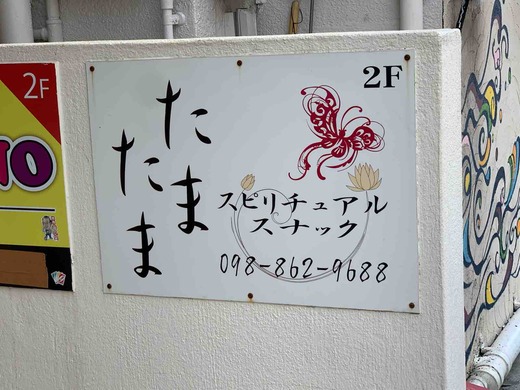 2F
たま
たま
スピリチュアル
スナック
098-862-9688
2F